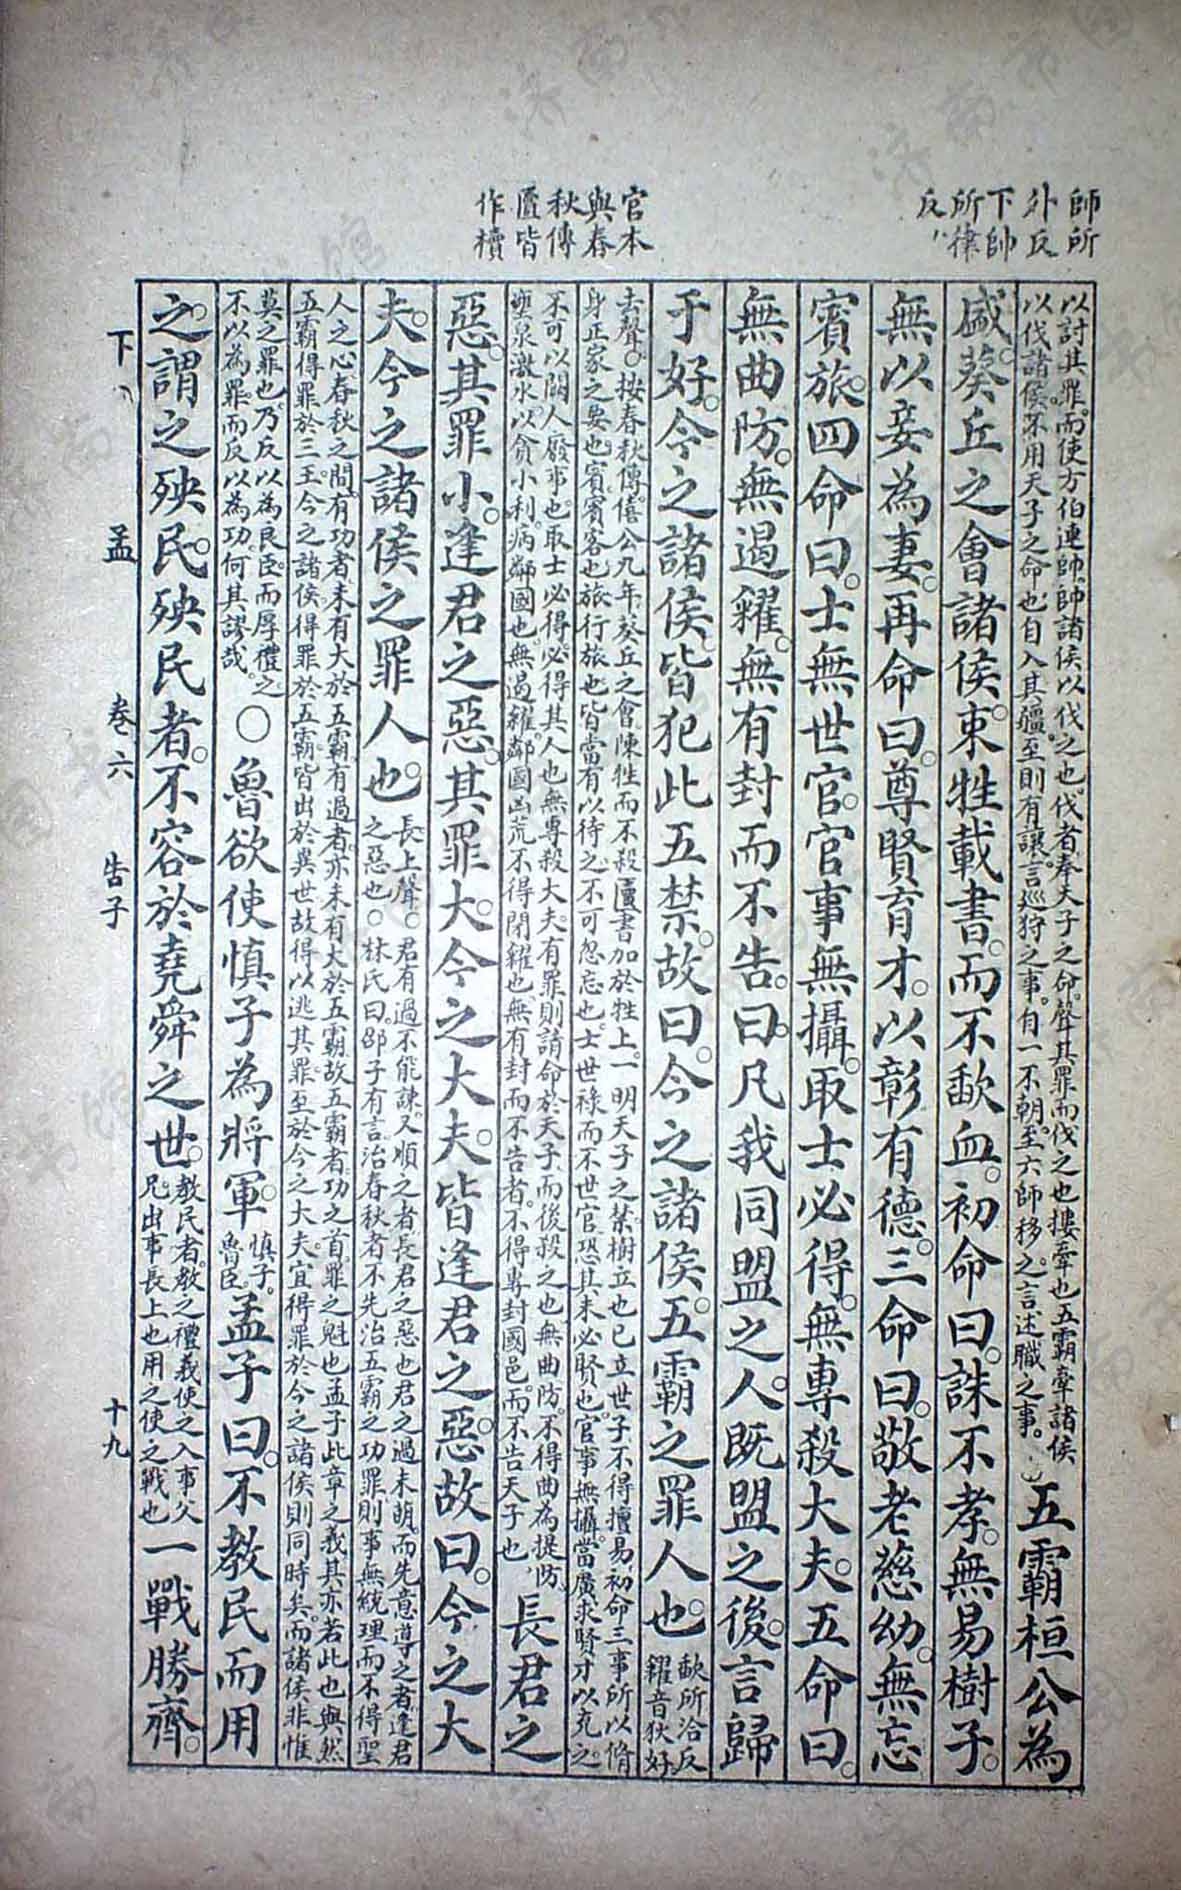 師所
外反
下帥
所律
反
官本
與春
秋傳
匵皆
作櫝
以討其罪而使方伯連帥帥諸侯以伐之也伐者奉天子之命聲其罪而伐之也摟牽也五霸牽諸侯
以伐諸侯不用天子之命也自入其疆至則有讓言巡狩之事自一不朝至六師移之言述職之事
五霸桓公為
盛葵丘之會諸侯束牲載書而不歃血初命曰誅不孝無易樹子
無以妾為妻再命曰尊賢育才以彰有德三命曰敬老慈幼無忘
賓旅四命曰士無世官官事無攝取士必得無專殺大夫五命曰
無曲防無遏糴無有封而不告曰凡我同盟之人既盟之後言歸
于好今之諸侯皆犯此五禁故曰今之諸侯五霸之罪人也
歃所洽反
糴音狄好
去聲○按春秋傳僖公九年葵丘之會陳牲而不殺匵書加於牲上一明天子之禁樹立也已立世子不得擅易初命三事所以脩
身正家之要也賓賓客也旅行旅也皆當有以待之不可忽忘也士世祿而不世官恐其未必賢也官事無攝當廣求賢才以充之
不可以闕人廢事也取士必得必得其人也無專殺大夫有罪則請命於天子而後殺之也無曲防不得曲為提防
壅泉激水以貪小利病鄰國也無遏糴鄰國凶荒不得閉糴也無有封而不告者不得專封國邑而不告天子也
長君之
惡其罪小逢君之惡其罪大今之大夫皆逢君之惡故曰今之大
夫今之諸侯之罪人也
長上聲○君有過不能諫又順之者長君之惡也君之過未萌而先意導之者逢君
之惡也○林氏曰邵子有言治春秋者不先治五霸之功罪則事無統理而不得聖
人之心春秋之間有功者未有大於五霸有過者亦未有大於五霸故五霸者功之首罪之魁也孟子此章之義其亦若此也與然
五霸得罪於三王今之諸侯得罪於五霸皆出於異世故得以逃其罪至於今之大夫宜得罪於今之諸侯則同時矣而諸侯非惟
莫之罪也乃反以為良臣而厚禮之
不以為罪而反以為功何其謬哉
○魯欲使慎子為將軍
慎子
魯臣
孟子曰不教民而用
之謂之殃民殃民者不容於堯舜之世
教民者教之禮義使之入事父
兄出事長上也用之使之戰也
一戰勝齊
下孟 卷六 告子 十九